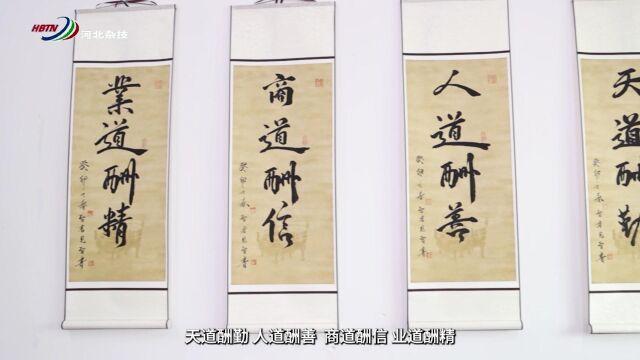 HBTN 河北杂技
天道酬勤
人道酬善
商道酬信
業道酬精
天道酬勤 人道酬善 商道酬信 业道酬精